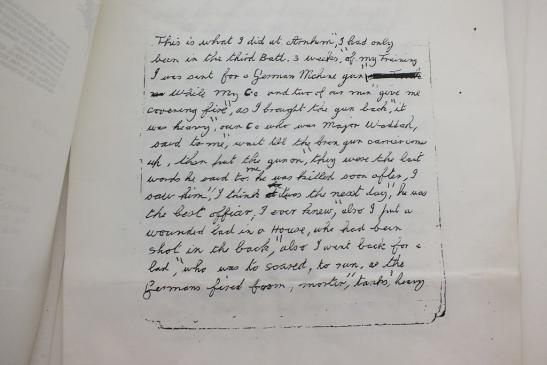 This is what I did at Arnhum", I had only
been in the third Batt. 3 weeks," of my Training
I was sent for a German Mchine gun"
While My Co and two of our men" give me
covering fire", as I brought the gun back," it
was heavy", our Co who was Major Waddah,
said to me, wait till the bren gun carrier come
up, then put the gun on," they were the last
words he said to me he was killed soon after, I
saw him", I think it was the next day," he was
the best officer, I ever knew," also I put a
wounded lad in a House, who had been
shot in the back," also I went back for a
lad," who was to scared, to run, as the
Germans fired from, mortir," tanks," heavy